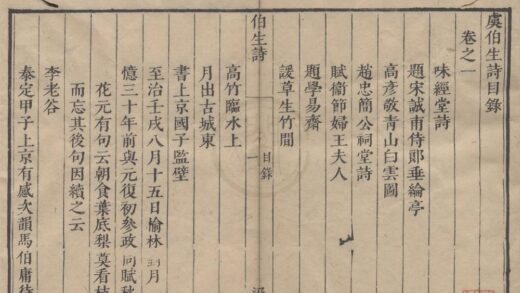 虞伯生詩目錄
卷之一
味經堂詩
題宋誠甫侍郎垂綸亭
高彥敬青山白雲圖
趙忠簡公祠堂詩
賦衛節婦王夫人
題學易齋
諼草生竹間
伯生詩
目錄
一
高竹臨水上
月出古城東
書上京國子監壁
至治壬戌八月十五日榆林對月
憶三十年前與元復初參政同賦秋
花元有句云朝食葉底梨莫看枝
而忘其後句因續之云
李老谷
泰定甲子上京有感次韻馬伯庸待